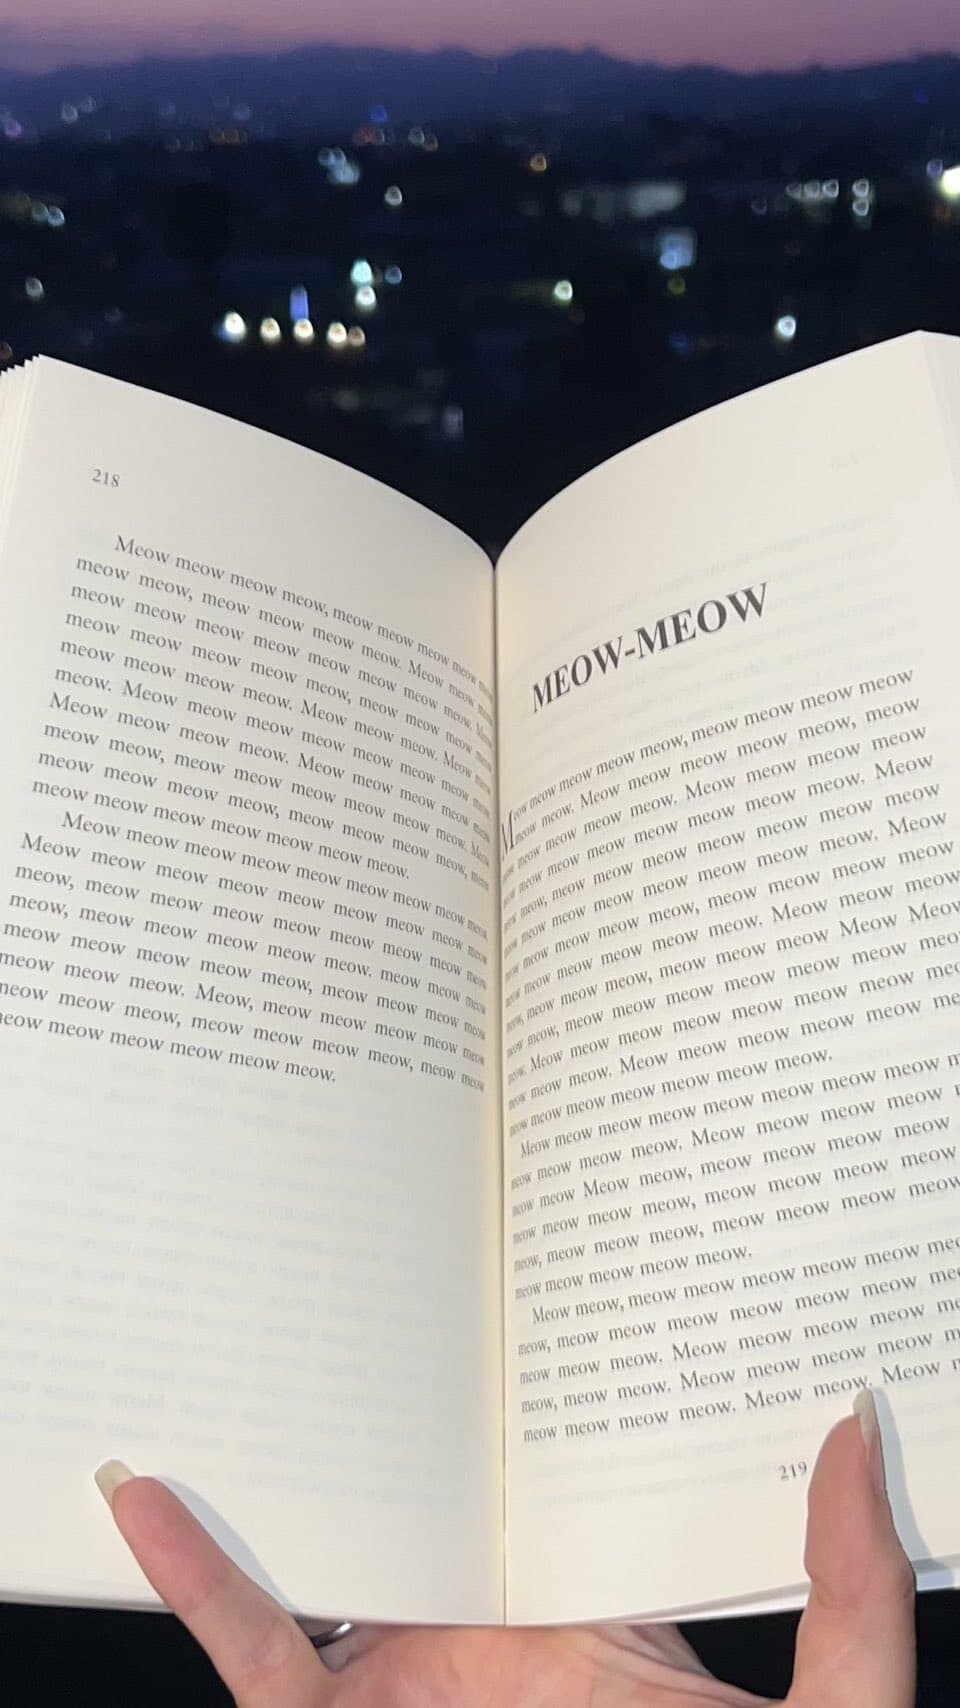 218
Meow meow meow meow, meow meow meow meow meow
meow meow, meow meow meow meow meow. Meow meow meow
meow meow meow meow meow meow meow meow meow. Meow
meow meow meow meow meow, meow meow meow meow meow
meow meow meow meow. Meow meow meow meow. Meow meow
meow. Meow meow meow meow meow meow meow meow meow
Meow meow meow meow. Meow meow meow meow meow meow
meow meow, meow meow meow meow meow meow meow. Meow
meow meow meow meow, meow meow meow meow meow, meow
meow meow meow meow meow meow meow.
Meow meow meow meow meow meow meow meow meow
Meow meow meow meow meow meow meow meow meow
meow, meow meow meow meow meow meow meow meow
meow, meow meow meow meow meow. meow meow meow
meow meow meow meow meow, meow meow meow meow
meow meow meow. Meow, meow meow meow meow meow
meow meow meow, meow meow meow meow, meow meow
meow meow meow meow meow meow.
MEOW-MEOW
Meow meow meow meow meow, meow meow meow meow
meow meow. Meow meow meow meow meow, meow
meow meow meow meow. Meow meow meow meow
meow meow meow meow meow meow meow. Meow
meow meow, meow meow meow meow meow meow meow
meow meow meow meow meow meow meow. Meow
meow meow meow meow, meow meow meow meow meow
meow meow meow meow meow. Meow meow meow meow
meow, meow meow meow, meow meow meow Meow Meow
meow meow, meow meow meow meow meow meow
meow. Meow meow meow meow meow meow meow
meow meow meow. Meow meow meow meow meow
meow meow meow meow meow meow meow.
Meow meow meow meow meow meow meow meow
meow meow meow meow. Meow meow meow meow
meow meow Meow meow, meow meow meow meow
meow meow meow meow, meow meow meow meow meow
meow, meow meow meow meow, meow meow meow meow
meow meow meow meow meow.
Meow meow, meow meow meow meow meow meow
meow, meow meow meow meow meow meow meow
meow meow meow. Meow meow meow meow meow
meow, meow meow. Meow meow meow meow meow
meow meow meow meow. Meow meow. Meow
219